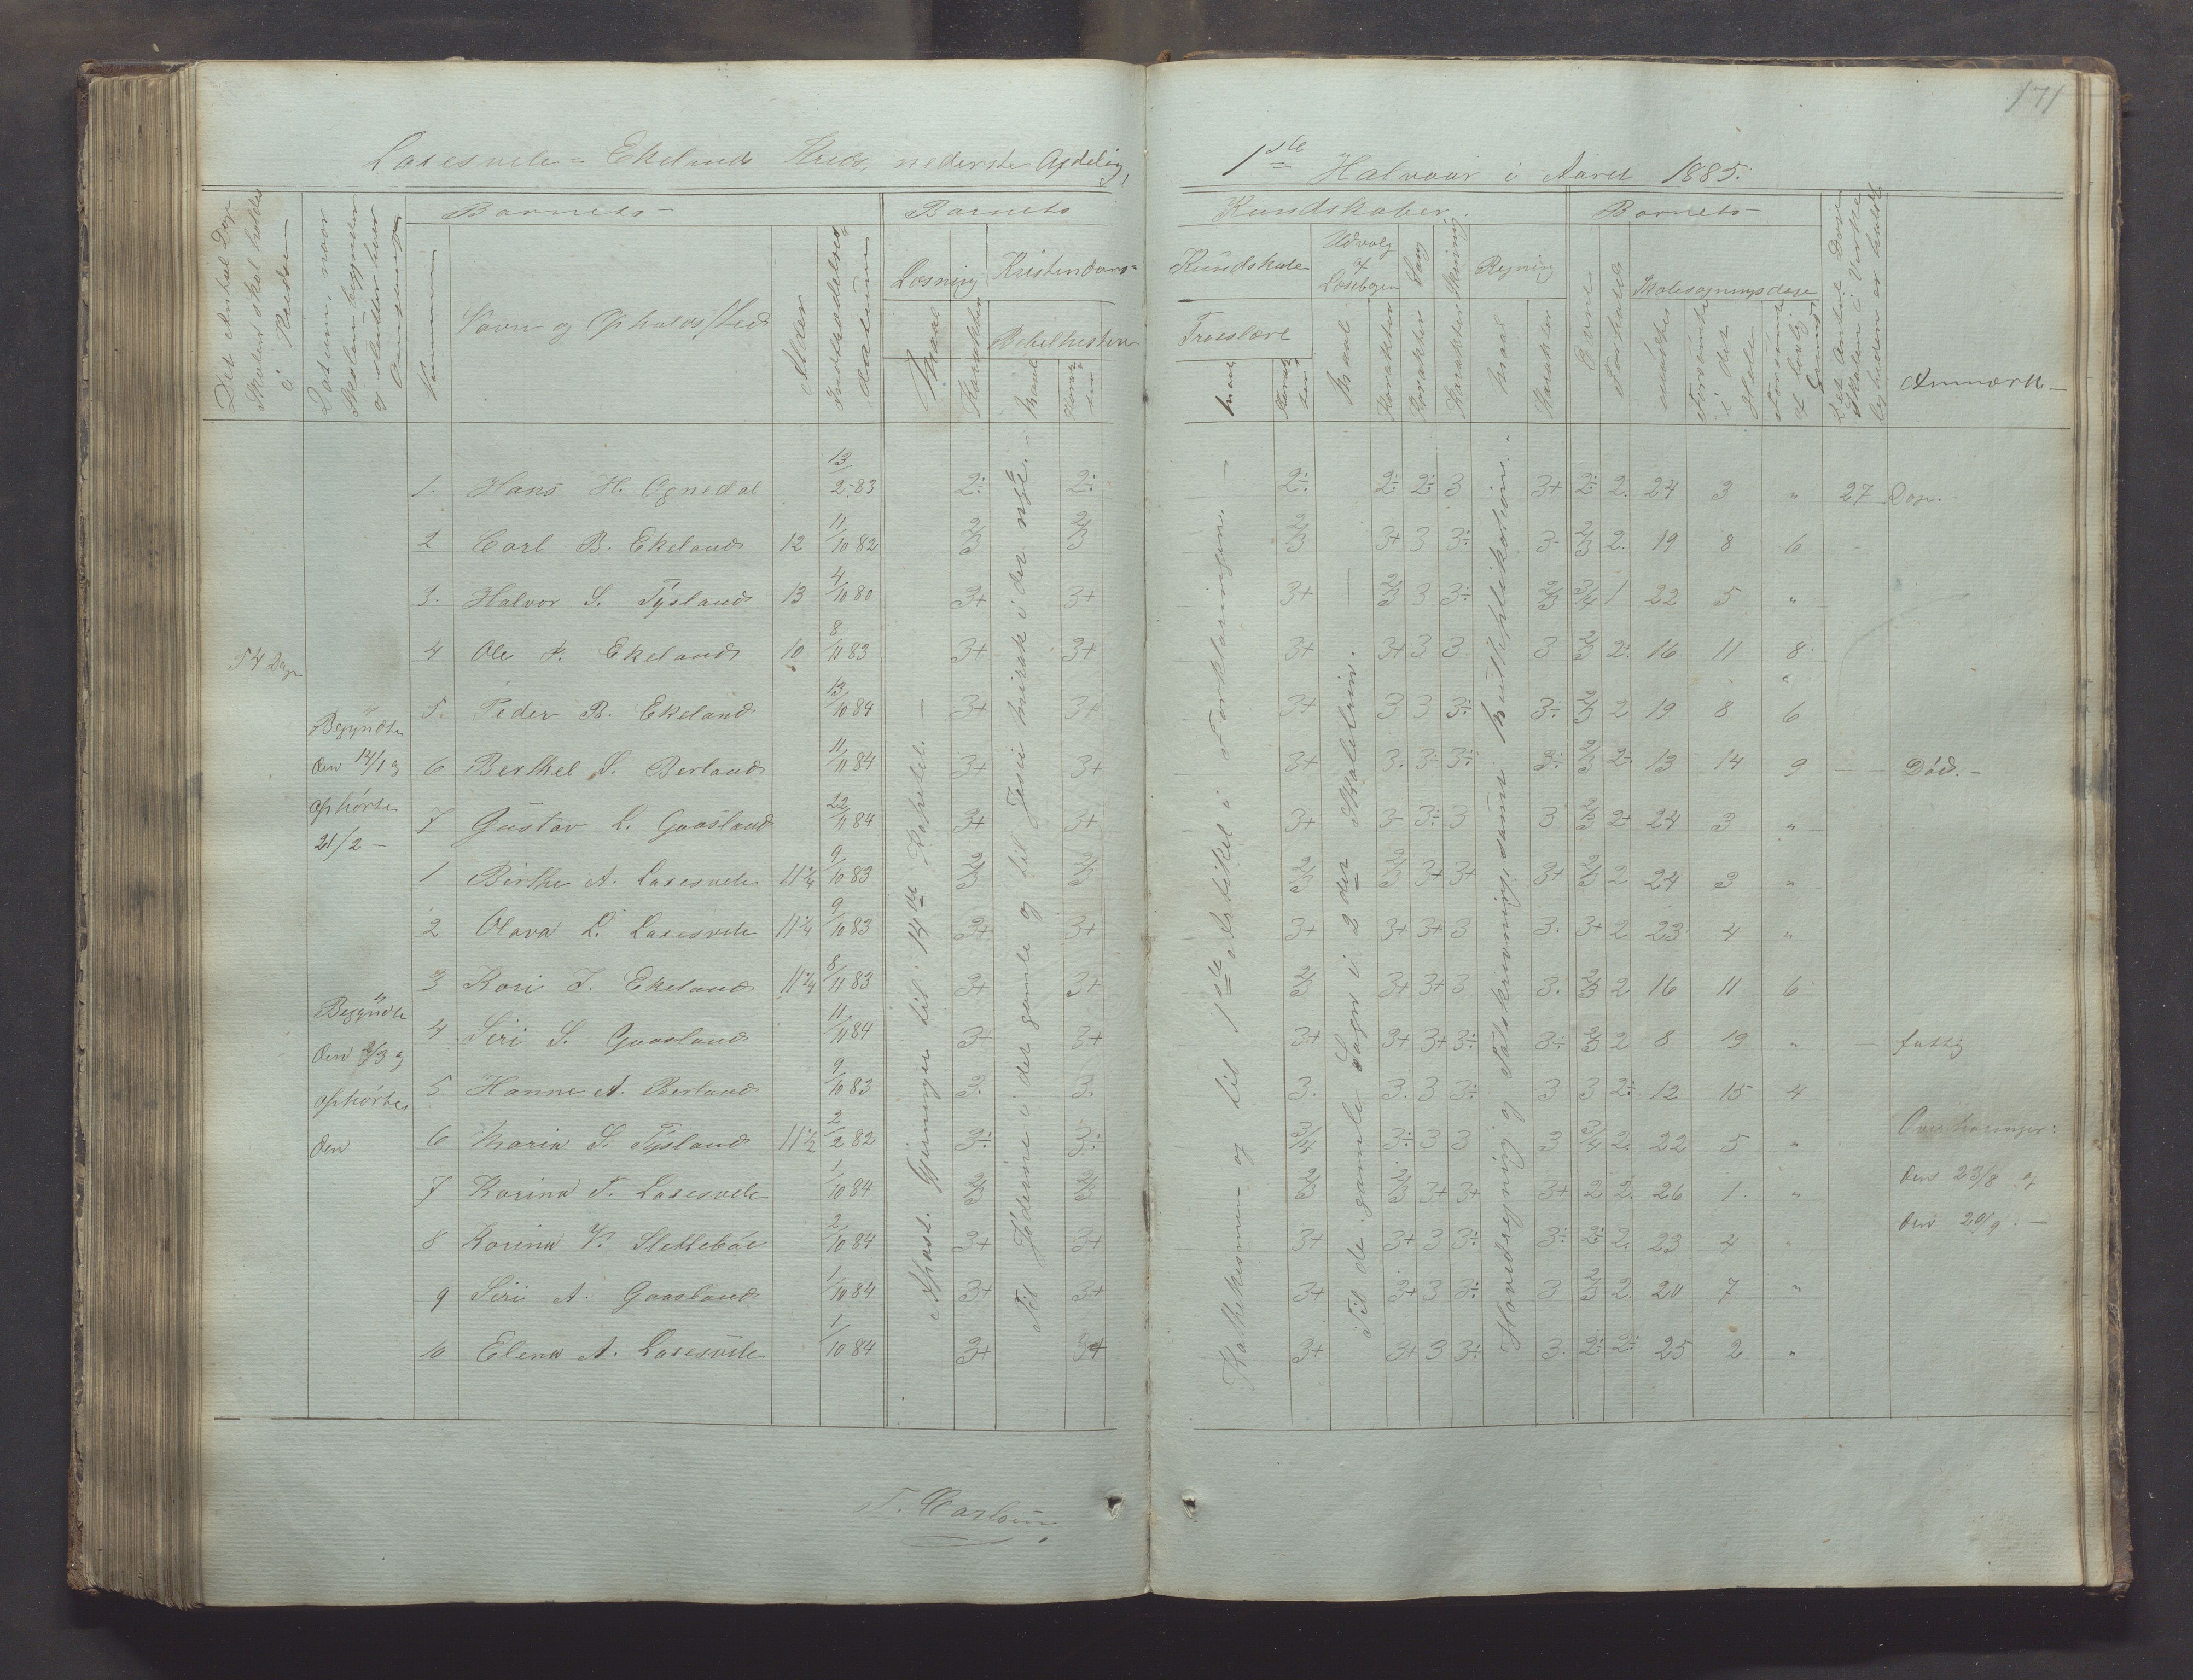 171
Laxesvele = Ekelands Kreds, nederste Afdeling,
1ste Halvaar i Aaret 1885.
Det Antal Dage Skolen skal holdes i Kredsen
Datum, naar Skolen begynder og slutter hver Omgang
Nummer
Barnets
Navn og Opholdssted
Alder
Indtrædelses-datum
Barnets
Læsning
Maal
Karakter
Kristendoms=
Bibelhistorie
Maal
Karakter
Kundskaber.
Kundskab
Troeslære
Maal
Karakter
Udvalg af Læsebogen
Maal
Karakter
Sang
Karakter
Skrivning
Karakter
Regning
Maal
Karakter
Barnets
Evne
Forhold
Skolesøgningsdage
mødte
Forsømte i det Hele
Forsømte af lovlig Grund
Det Antal Dage Skolen i Virkeligheden er holdt
Anmærk-
1. Hans H. Ognedal 13/2-83 2÷ 2÷ 2÷ 2÷ 2÷ 3 3+ 2÷ 2. 24 3 " 27 Dage.
2 Carl B. Ekeland 12 11/10 82 2/3 2/3 2/3 3+ 3 3÷ 3- 2/3 2. 19 8 6
3. Halvor S. Tysland 13 4/10 80 3+ 3+ 3+ 2/3 3 3÷ 2/3 3/4 1 22 5 "
4 Ole P. Ekeland 10 8/11 83 3+ 3+ 3+ 3+ 3 3 3 2/3 2. 16 11 8
54 Dage
5. Peder B. Ekeland 13/10 84 3+ 3+ 3+ 3 3 3÷ 3÷ 2/3 2 19 8 6
Begyndte
den 14/1 og
ophørte
21/2 -
6 Berthel S. Berland 11/11 84 3+ 3+ 3+ 3. 3- 3÷ 3÷ 2/3 2- 13 14 9 — Død. -
7 Gustav L. Gaasland 22/11 84 3+ 3+ 3+ 3- 3÷ 3 3 2/3 2+ 24 3 "
1 Birthe A. Laxesvele 11 1/4 9/10 83 2/3 2/3 2/3 2/3 3+ 3+ 3+ 2/3 2 24 3 "
2 Olava L. Laxesvele 11 1/4 9/10 83 3+ 3+ 3+ 3+ 3+ 3 3. 3+ 2 23 4 "
3 Kari J. Ekeland 11 1/4 8/11 83 3+ 3+ 2/3 3+ 3+ 3 3. 2/3 2 16 11 6
Begyndte
den 2/3 og
ophørte
den
4 Siri S. Gaasland 11/11 84 3+ 3+ 3+ 3+ 3+ 3÷ 3÷ 2/3 2 8 19 " fattig
5 Hanne A. Berland 9/10 83 3. 3. 3. 3. 3 3÷ 3 3 2÷ 12 15 4
6 Maria S. Tysland 11 1/2 2/2 82 3÷ 3÷ 3/4 3÷ 3 3 3 3/4 2. 22 5 "
Overhøringer:
den 23/8 og
den 20/9. -
7 Karina T. Laxesvele 1/10 84 2/3 2/3 2/3 2/3 3+ 3+ 3+ 2 2. 26 1 "
8 Karina V. Slettebøe 2/10 84 3+ 3+ 3+ 3+ 3 3÷ 3÷ 2÷ 2. 23 4 "
9 Siri A. Gaasland 1/10 84 3+ 3+ 3+ 3+ 3 3÷ 3 2/3 2. 20 7 "
10 Elena A. Laxesvele 1/10 84 3+ 3+ 3+ 3+ 3 3÷ 3. 2÷ 2÷ 25 2 "
Apost. Gjerninger til 14de Kapitel. -
Til Jøderne i det gamle og til Jesu Mirak i det nye. -
Katekismen og til 1ste Artikel i Forklaringen. -
Til de gamle Sagn i 2den Skoletrin. -
Hovedregning og Talskrivning samt Multiplikation. -
T. Carlsen